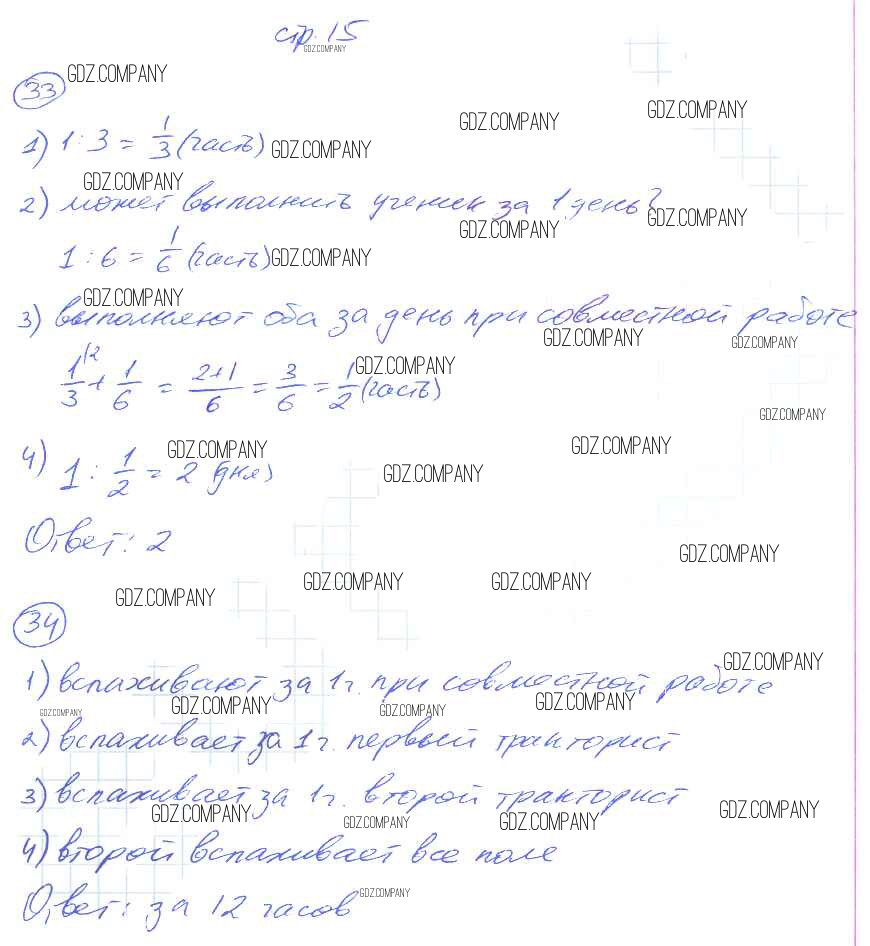 стр. 15
GDZ.COMPANY
33 GDZ.COMPANY
GDZ.COMPANY GDZ.COMPANY
1) 1 : 3 = 1/3 (часть) GDZ.COMPANY
GDZ.COMPANY
2) может выполнить ученик за 1 день?
GDZ.COMPANY GDZ.COMPANY
1 : 6 = 1/6 (часть) GDZ.COMPANY
GDZ.COMPANY
3) выполняют оба за день при совместной работе
GDZ.COMPANY GDZ.COMPANY
GDZ.COMPANY
1/3 |2 + 1/6 = 2+1/6 = 3/6 = 1/2 (часть)
GDZ.COMPANY
GDZ.COMPANY GDZ.COMPANY
4) 1 : 1/2 = 2 (дня)
GDZ.COMPANY
Ответ: 2
GDZ.COMPANY
GDZ.COMPANY GDZ.COMPANY GDZ.COMPANY
34
GDZ.COMPANY
1) вспахивают за 1 г. при совместной работе
GDZ.COMPANY GDZ.COMPANY GDZ.COMPANY GDZ.COMPANY
2) вспахивает за 1 г. первый тракторист
3) вспахивает за 1 г. второй тракторист
GDZ.COMPANY GDZ.COMPANY GDZ.COMPANY GDZ.COMPANY
4) второй вспахивает все поле
GDZ.COMPANY
Ответ: за 12 часов